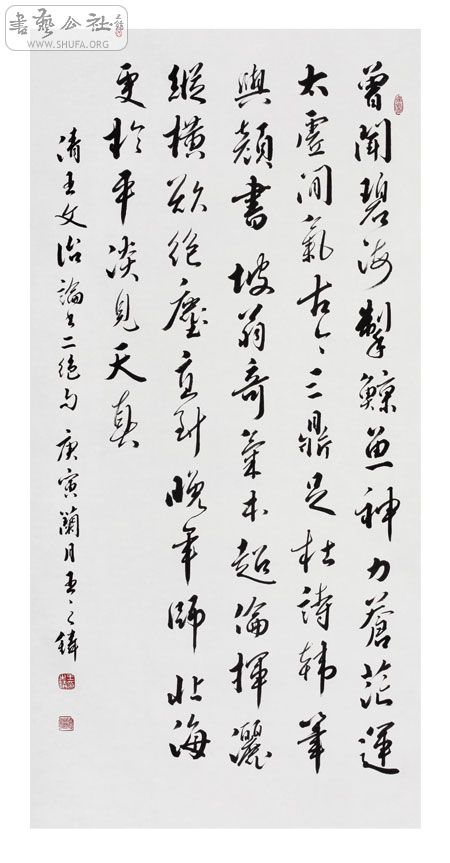 書藝公社
WWW.SHUFA.ORG
曾聞碧海掣鯨魚神力蒼茫運
太虛間氣古今三鼎足杜詩韩筆
與顏書坡翁奇氣本超倫揮灑
縱橫欲絕塵直到晚年師北海
更於平淡見天真
清王文治論书二絕句 庚寅蘭月